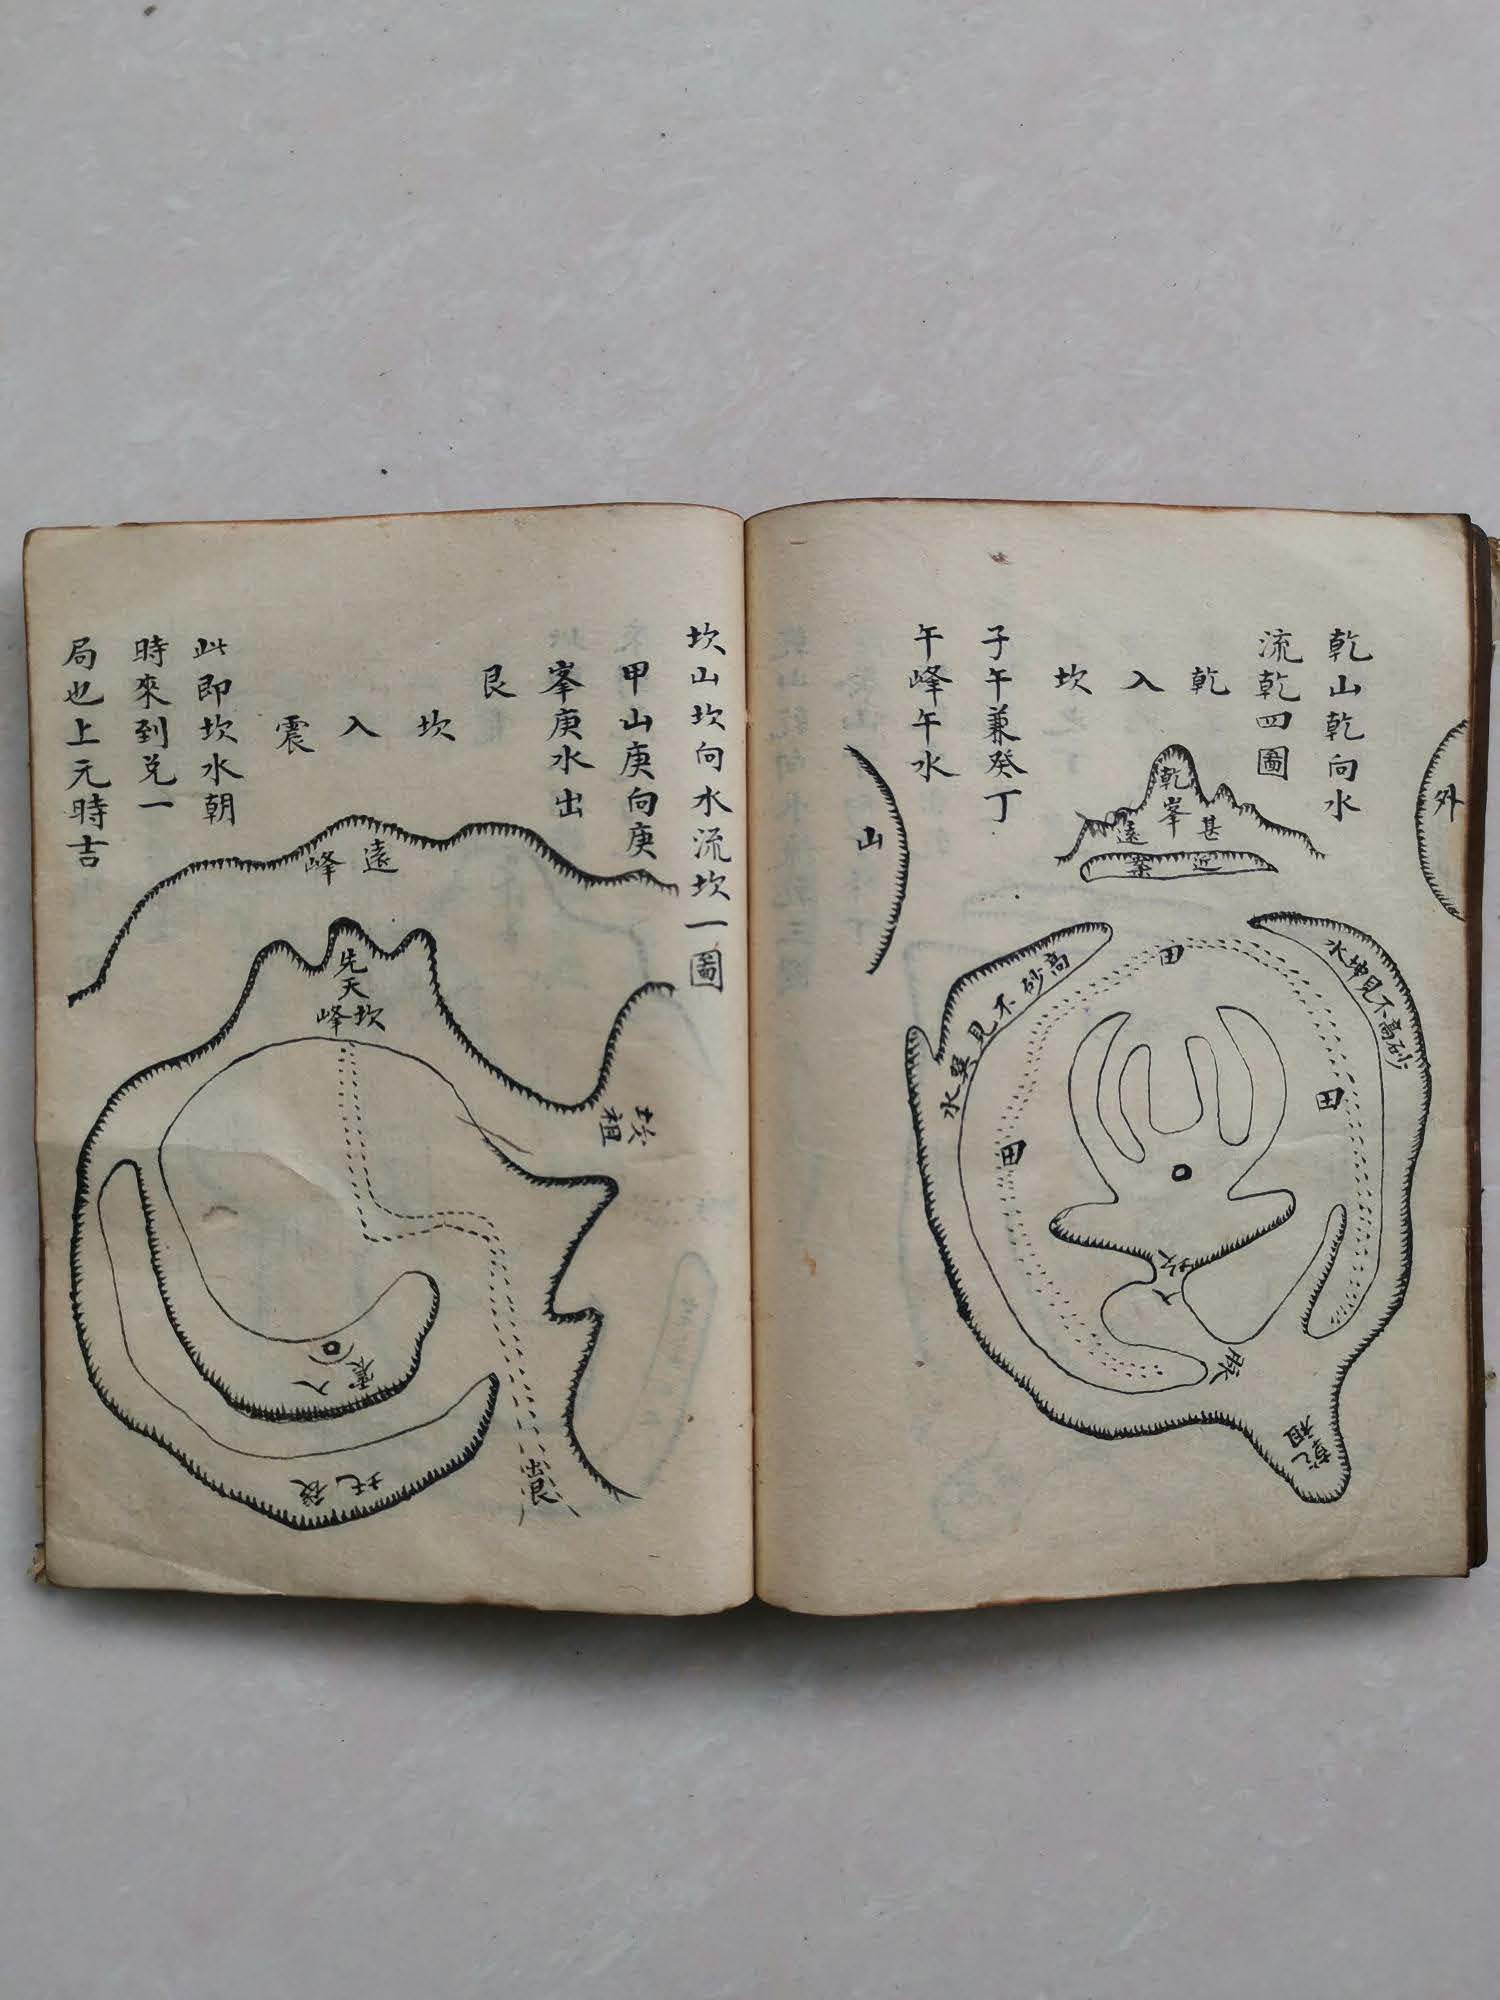 乾山乾向水
流乾四圖
乾
入
坎
子午兼癸丁
午峰午水
外
山
乾峯
甚
遠
近
案
水坤見不高砂
高砂不見巽水
田
田
田
坎
入
脉
乾
祖
坎山坎向水流坎一圖
甲山庚向庚
峯庚水出
艮
坎
入
震
此即坎水朝
時來到兌一
局也上元時吉
遠
峰
先天
坎
峰
坎
祖
震
入
後
托
出艮